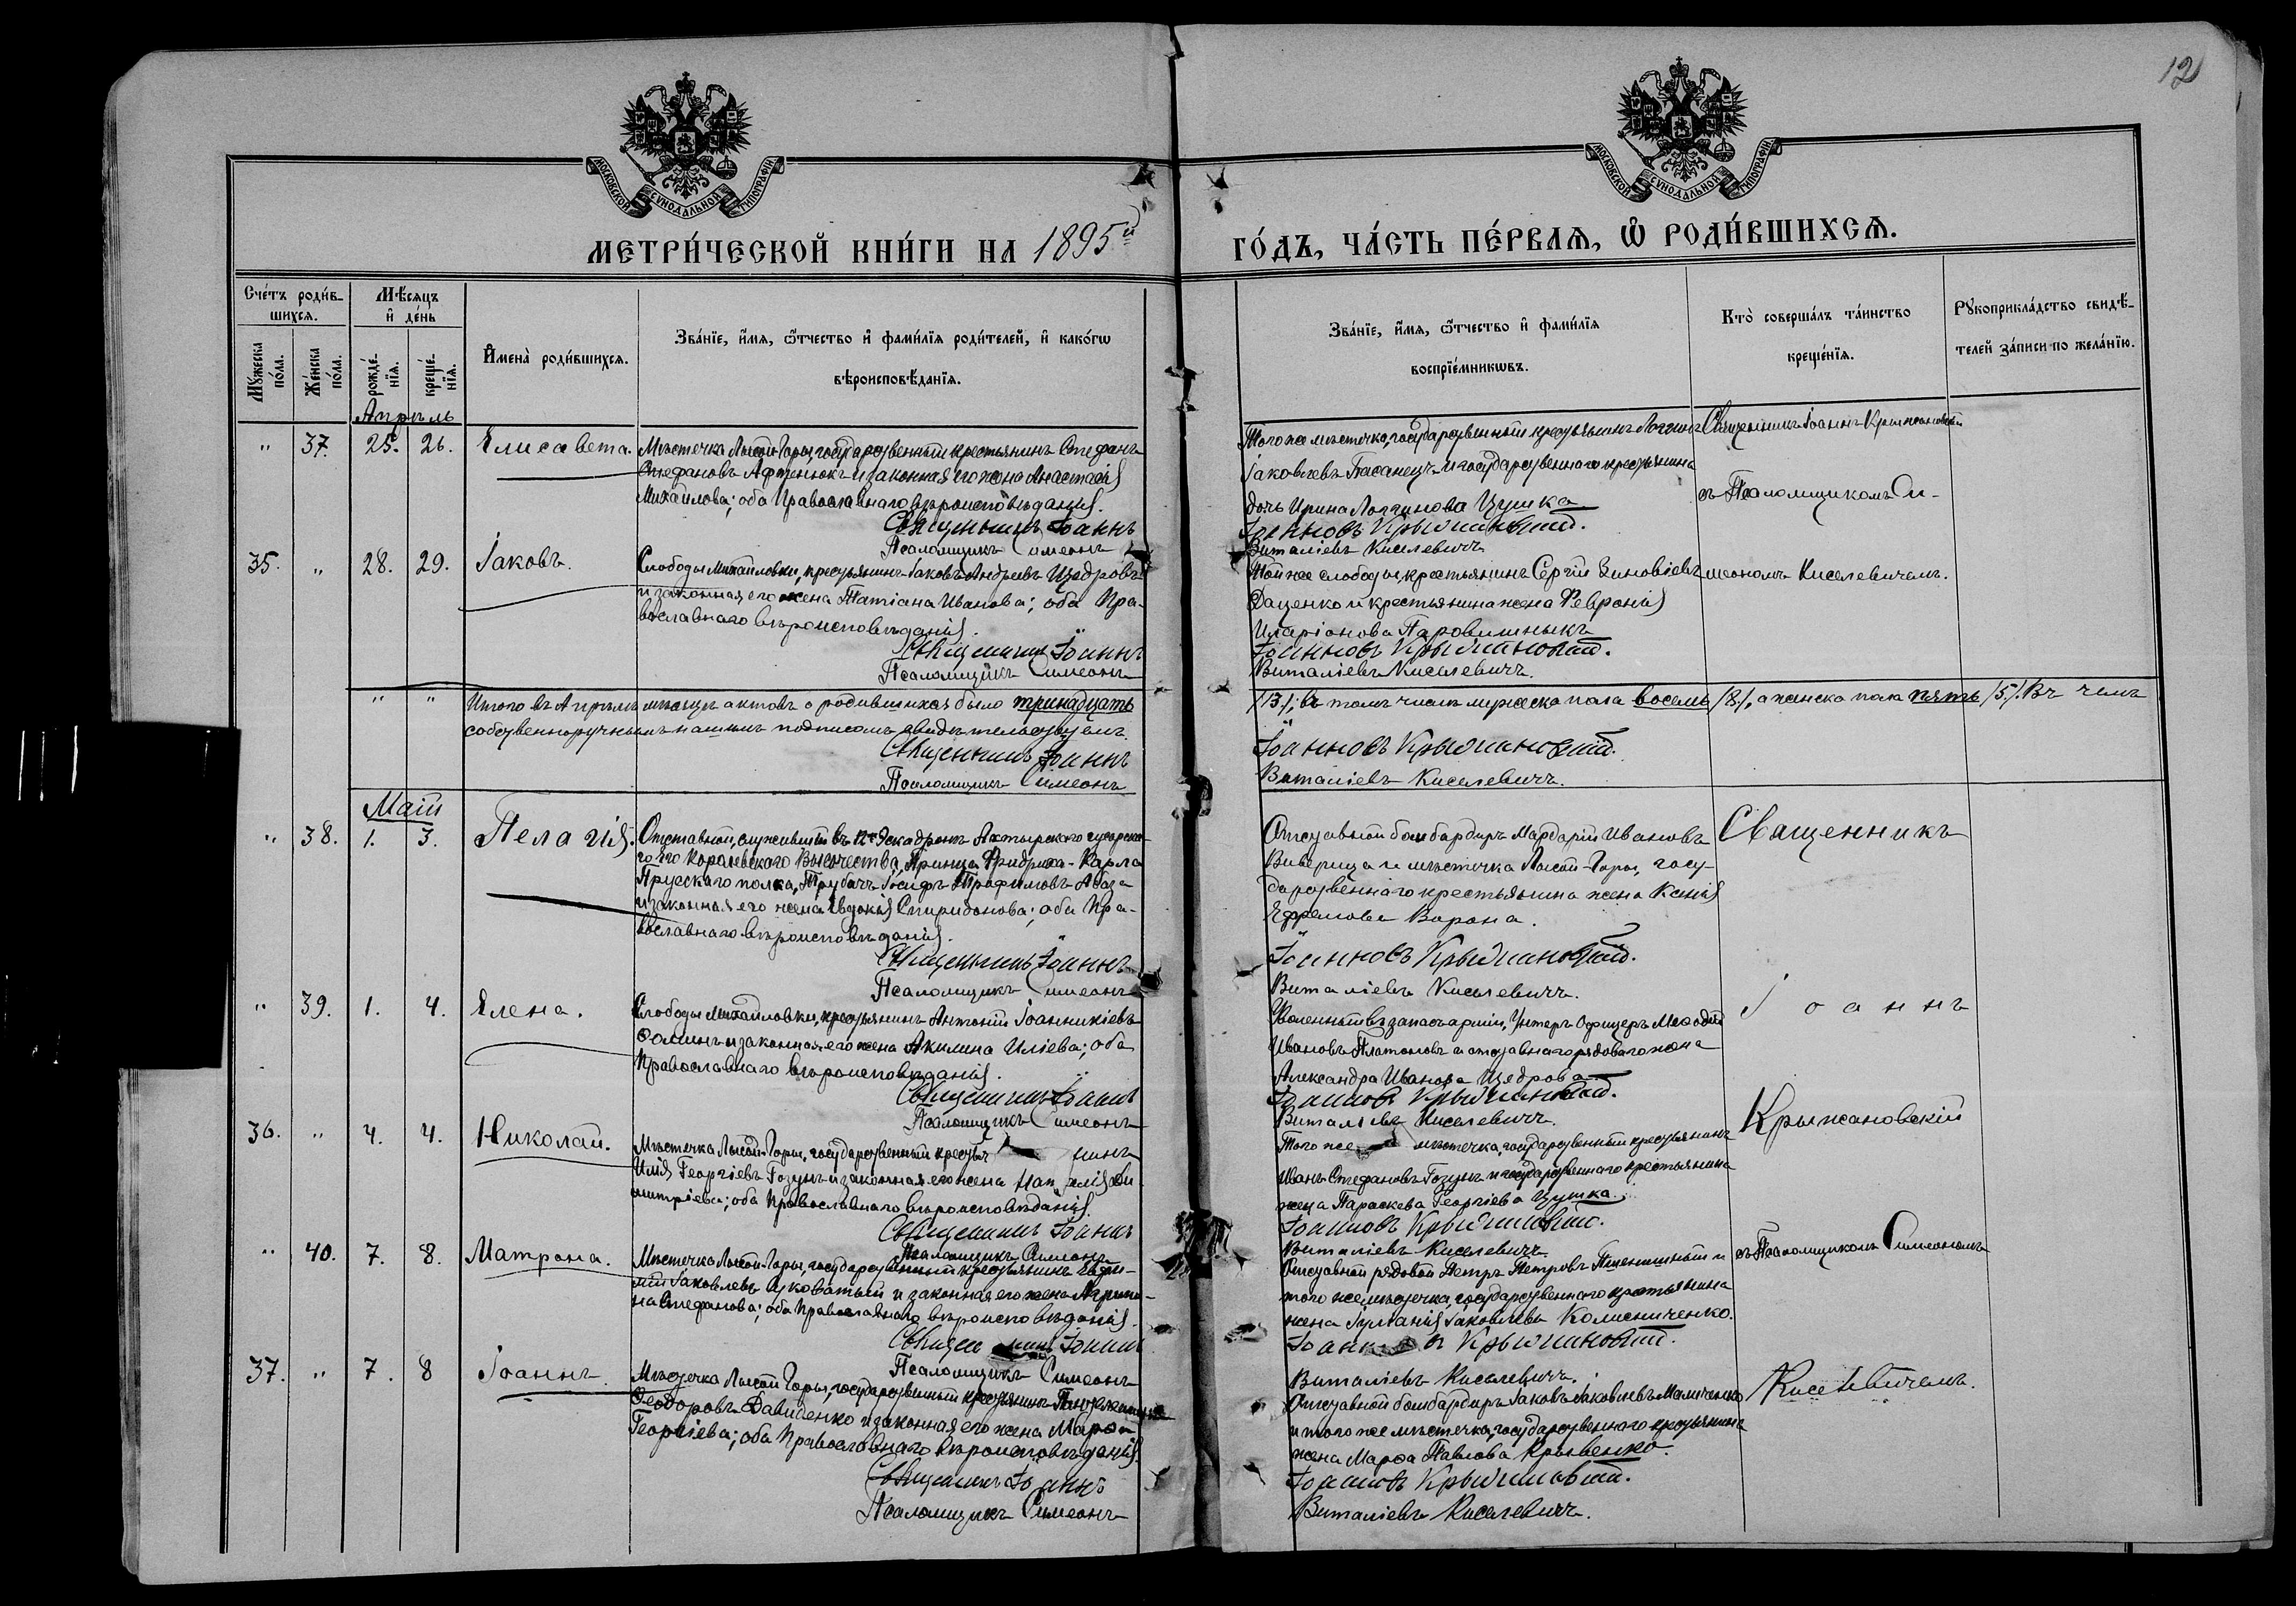 12
МОСКОВСКОЙ СУНОДАЛЬНОЙ ТИПОГРАФІИ
МОСКОВСКОЙ СУНОДАЛЬНОЙ ТИПОГРАФІИ
МЕТРИ́ЧЕСКОЙ КНИ́ГИ НА 1895й
ГО́ДЪ, ЧА́СТЬ ПЕ́РВАѦ, Ѡ РОДИ́ВШИХСѦ.
Сче́тъ роди́в-
шихсѧ.
Мѣ́сѧцъ
и҆ де́нь
Мꙋ́жеска по́ла.
Же́нска по́ла.
рожде́-
нїѧ.
креще́-
нїѧ.
И҆мена̀ роди́вшихсѧ.
Зва́нїе, и҆́мѧ, ѻ҆́тчество и҆ фами́лїѧ роди́телей, и҆ како́гѡ
вѣроисповѣ́данїѧ.
Зва́нїе, и҆́мѧ, ѻ҆́тчество и҆ фами́лїѧ
воспрїе́мникѡвъ.
Кто̀ соверша́лъ та́инство
креще́нїѧ.
Рꙋкоприкла́дство свидѣ́-
телей за́писи по жела́нїю.
Апрѣль
" 37. 25. 26. Елисавета.
Мѣстечка Лысой-Горы, государственный крестьянинъ Стефанъ
Стефановъ Афтенюкъ и законная его жена Анастасія
Михайлова; оба Православнаго вѣроисповѣданія.
Священникъ Іоаннъ
Псаломщикъ Симеонъ
Того же мѣстечка, государственный крестьянинъ Логгинъ
Іаковлевъ Басанецъ и государственнаго крестьянина
дочь Ирина Логгинова Цушка
Іоанновъ Крыжановскій.
Виталіевъ Киселевичъ
Священникъ Іоаннъ Крыжановскій
съ Псаломщикомъ Си-
35. " 28. 29. Іаковъ.
Слободы Михайловки, крестьянинъ Іаковъ Андреевъ Щедровъ
и законная его жена Татіана Иванова; оба Пра-
вославнаго вѣроисповѣданія.
Священникъ Іоаннъ
Псаломщикъ Симеонъ
Той же слободы, крестьянинъ Сергій Зиновіевъ
Даценко и крестьянина жена Февронія
Иларіонова
Іоанновъ Крыжановскій.
Виталіевъ Киселевичъ.
меономъ Киселевичемъ.
" " Итого въ Апрѣлѣ мѣсяцѣ актовъ о родившихся было тринадцать
собственноручнымъ нашимъ подписомъ свидѣтельствуемъ.
Священникъ Іоаннъ
Псаломщикъ Симеонъ
/13/; въ томъ числѣ мужеска пола восемь /8/, а женска пола пять /5/. Въ чемъ
Іоанновъ Крыжановскій.
Виталіевъ Киселевичъ.
Май
" 38. 1. 3. Пелагія.
Отставной, служившій въ Эскадронѣ Ахтырского гусарска-
го Его Королевскаго Высочества, Принца Фридриха-Карла
Прусскаго полка, Трубачъ Іосифъ Трофимовъ Абаза
и законная его жена Евдокія Спиридонова; оба Пра-
вославнаго вѣроисповѣданія.
Священникъ Іоаннъ
Псаломщикъ Симеонъ
Отставной бомбардиръ Мардарій Ивановъ
Виверица и мѣстечка Лысой-Горы, госу-
дарственнаго крестьянина жена Ксенія
Ефремова Ворона.
Іоанновъ Крыжановскій.
Виталіевъ Киселевичъ.
Священникъ
" 39. 1. 4. Елена.
Слободы Михайловки, крестьянинъ Антоній Іоанникіевъ
Ѳоминъ и законная его жена Акилина Иліева; оба
Православнаго вѣроисповѣданія.
Священникъ Іоаннъ
Псаломщикъ Симеонъ
Уволенный въ запасъ арміи, Унтеръ Офицеръ Меѳодій
Ивановъ Платоновъ и отставнаго рядоваго жена
Александра Иванова Щедрова
Іоанновъ Крыжановскій.
Виталіевъ Киселевичъ.
Іоаннъ
36. " 4. 4. Николай.
Мѣстечка Лысой-Горы, государственный крестьянинъ
Илія Георгіевъ Гозунъ и законная его жена Наталія Ди-
митріева; оба Православнаго вѣроисповѣданія.
Священникъ Іоаннъ
Псаломщикъ Симеонъ
Того же мѣстечка, государственный крестьянинъ
Иванъ Стефановъ Гозунъ и государственнаго крестьянина
жена Параскева Георгіева Цушка.
Іоанновъ Крыжановскій.
Виталіевъ Киселевичъ.
Крыжановскій
" 40. 7. 8. Матрона.
Мѣстечка Лысой-Горы, государственный крестьянинъ Евфи-
мій Іаковлевъ Цуковатый и законная его жена Агрипи-
на Стефанова; оба Православнаго вѣроисповѣданія.
Священникъ Іоаннъ
Псаломщикъ Симеонъ
Отставной рядовой Петръ Петровъ Пшеничный и
того же мѣстечка, государственнаго крестьянина
жена Іуліанія Іаковлева Колисниченко.
Іоанновъ Крыжановскій.
Виталіевъ Киселевичъ.
съ Псаломщикомъ Симеономъ
37. " 7. 8 Іоаннъ.
Мѣстечка Лысой Горы, государственный крестьянинъ
Ѳеодоровъ Давиденко и законная его жена Марѳа
Георгіева; оба Православнаго вѣроисповѣданія.
Священникъ Іоаннъ
Псаломщикъ Симеонъ
Отставной бомбардиръ Іаковъ Іаковлевъ
и того же мѣстечка, государственнаго крестьянина
жена Марѳа Павлова Кривенко.
Іоанновъ Крыжановскій.
Виталіевъ Киселевичъ.
Киселевичемъ.